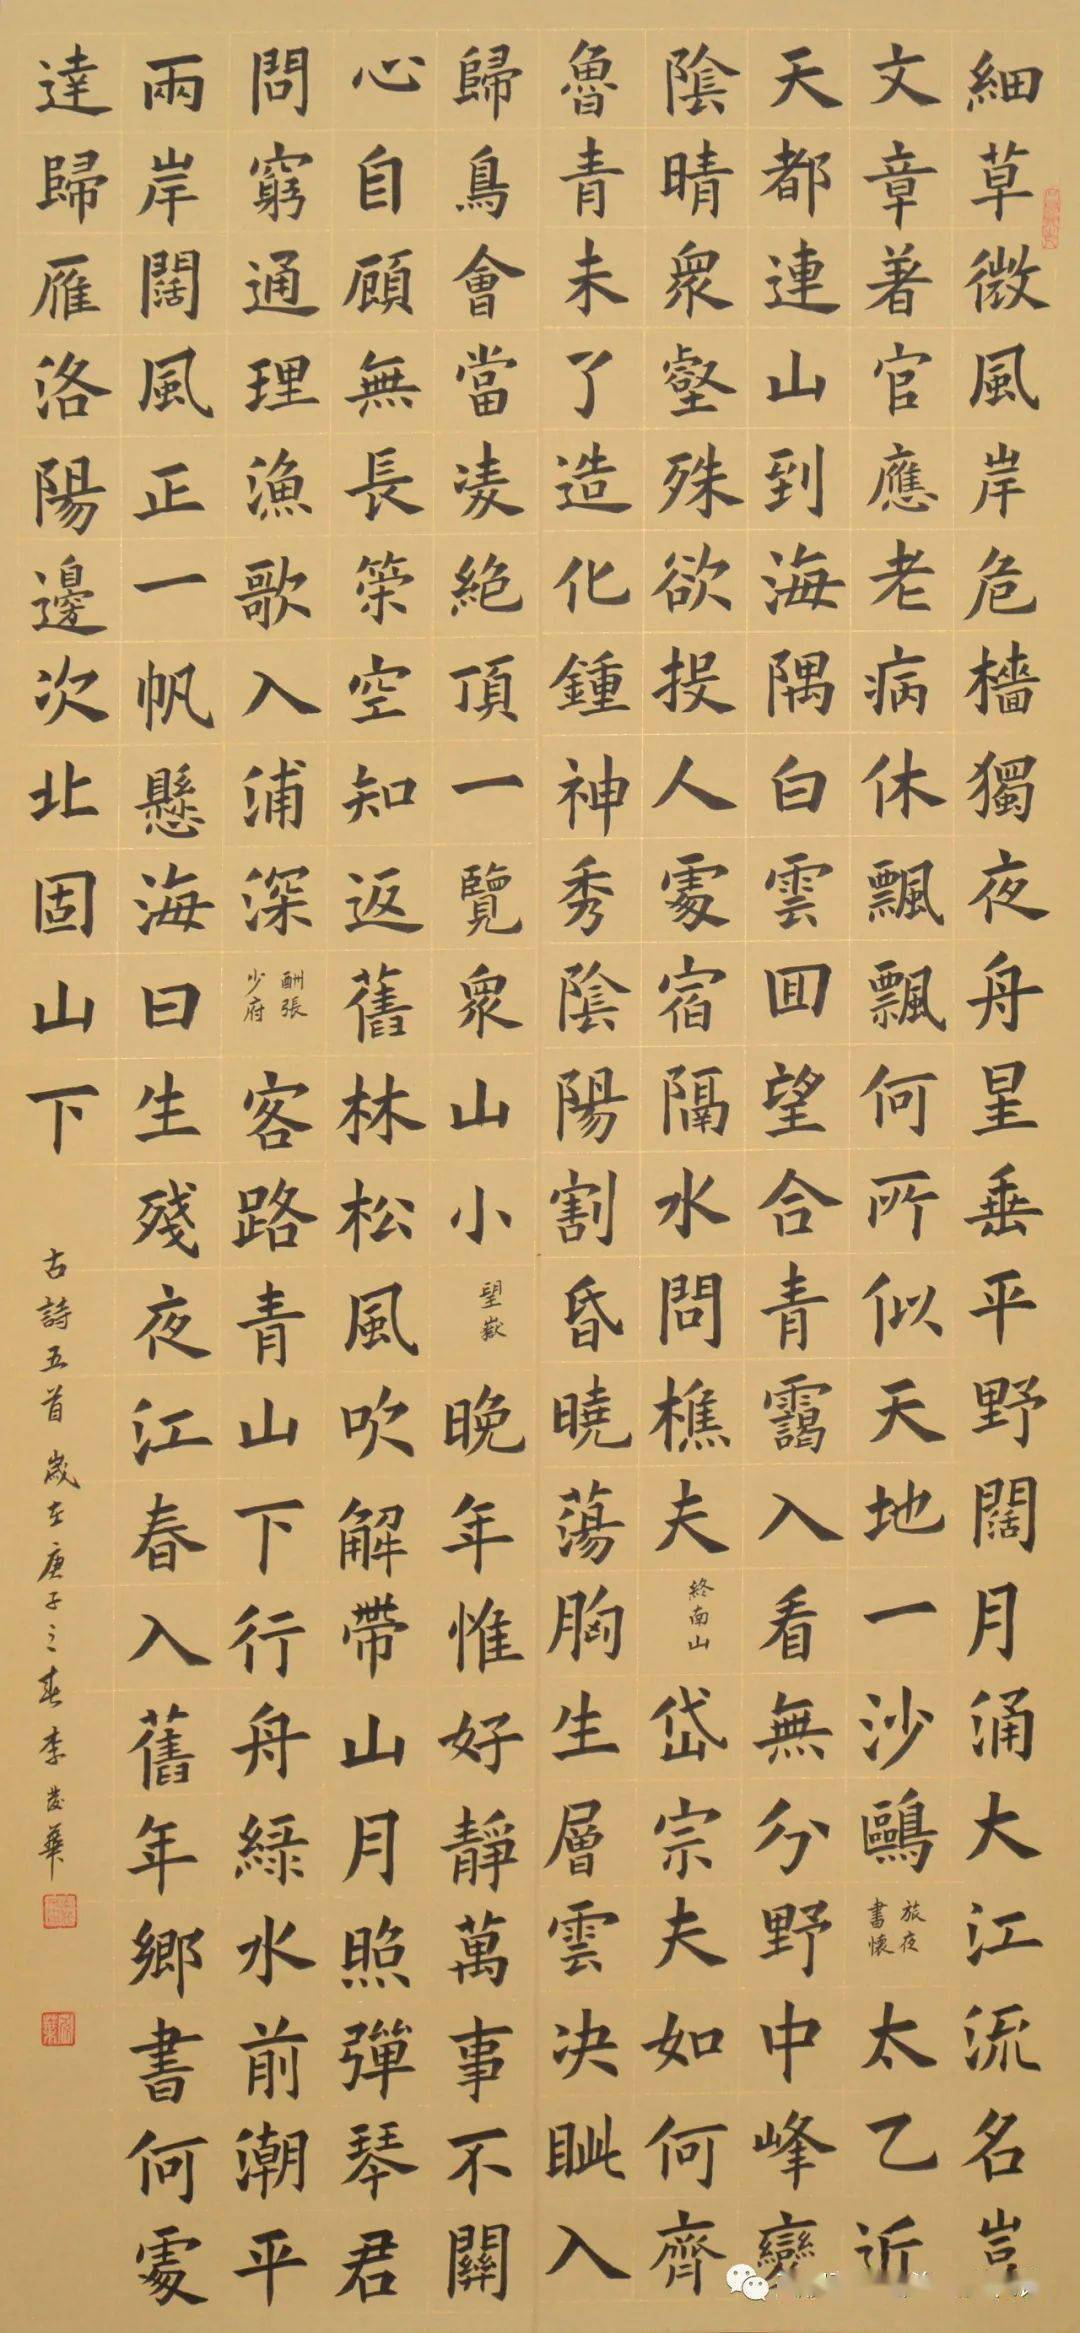 細草微風岸危檣獨夜舟星垂平野闊月涌大江流名豈
文章著官應老病休飄飄何所似天地一沙鷗 旅夜書懷 太乙近
天都連山到海隅白雲囬望合青靄入看無分野中峰變
陰晴衆壑殊欲投人處宿隔水問樵夫 終南山 岱宗夫如何齊
魯青未了造化鍾神秀陰陽割昏曉蕩胸生層雲決眦入
歸鳥會當凌絕頂一覽衆山小 望嶽 晚年惟好靜萬事不關
心自顧無長策空知返舊林松風吹解帶山月照彈琴君
問窮通理漁歌入浦深 酬張少府 客路青山下行舟綠水前潮平
兩岸闊風正一帆懸海日生殘夜江春入舊年鄉書何處
達歸雁洛陽邊次北固山下
古詩五首 歲在庚子之春李華